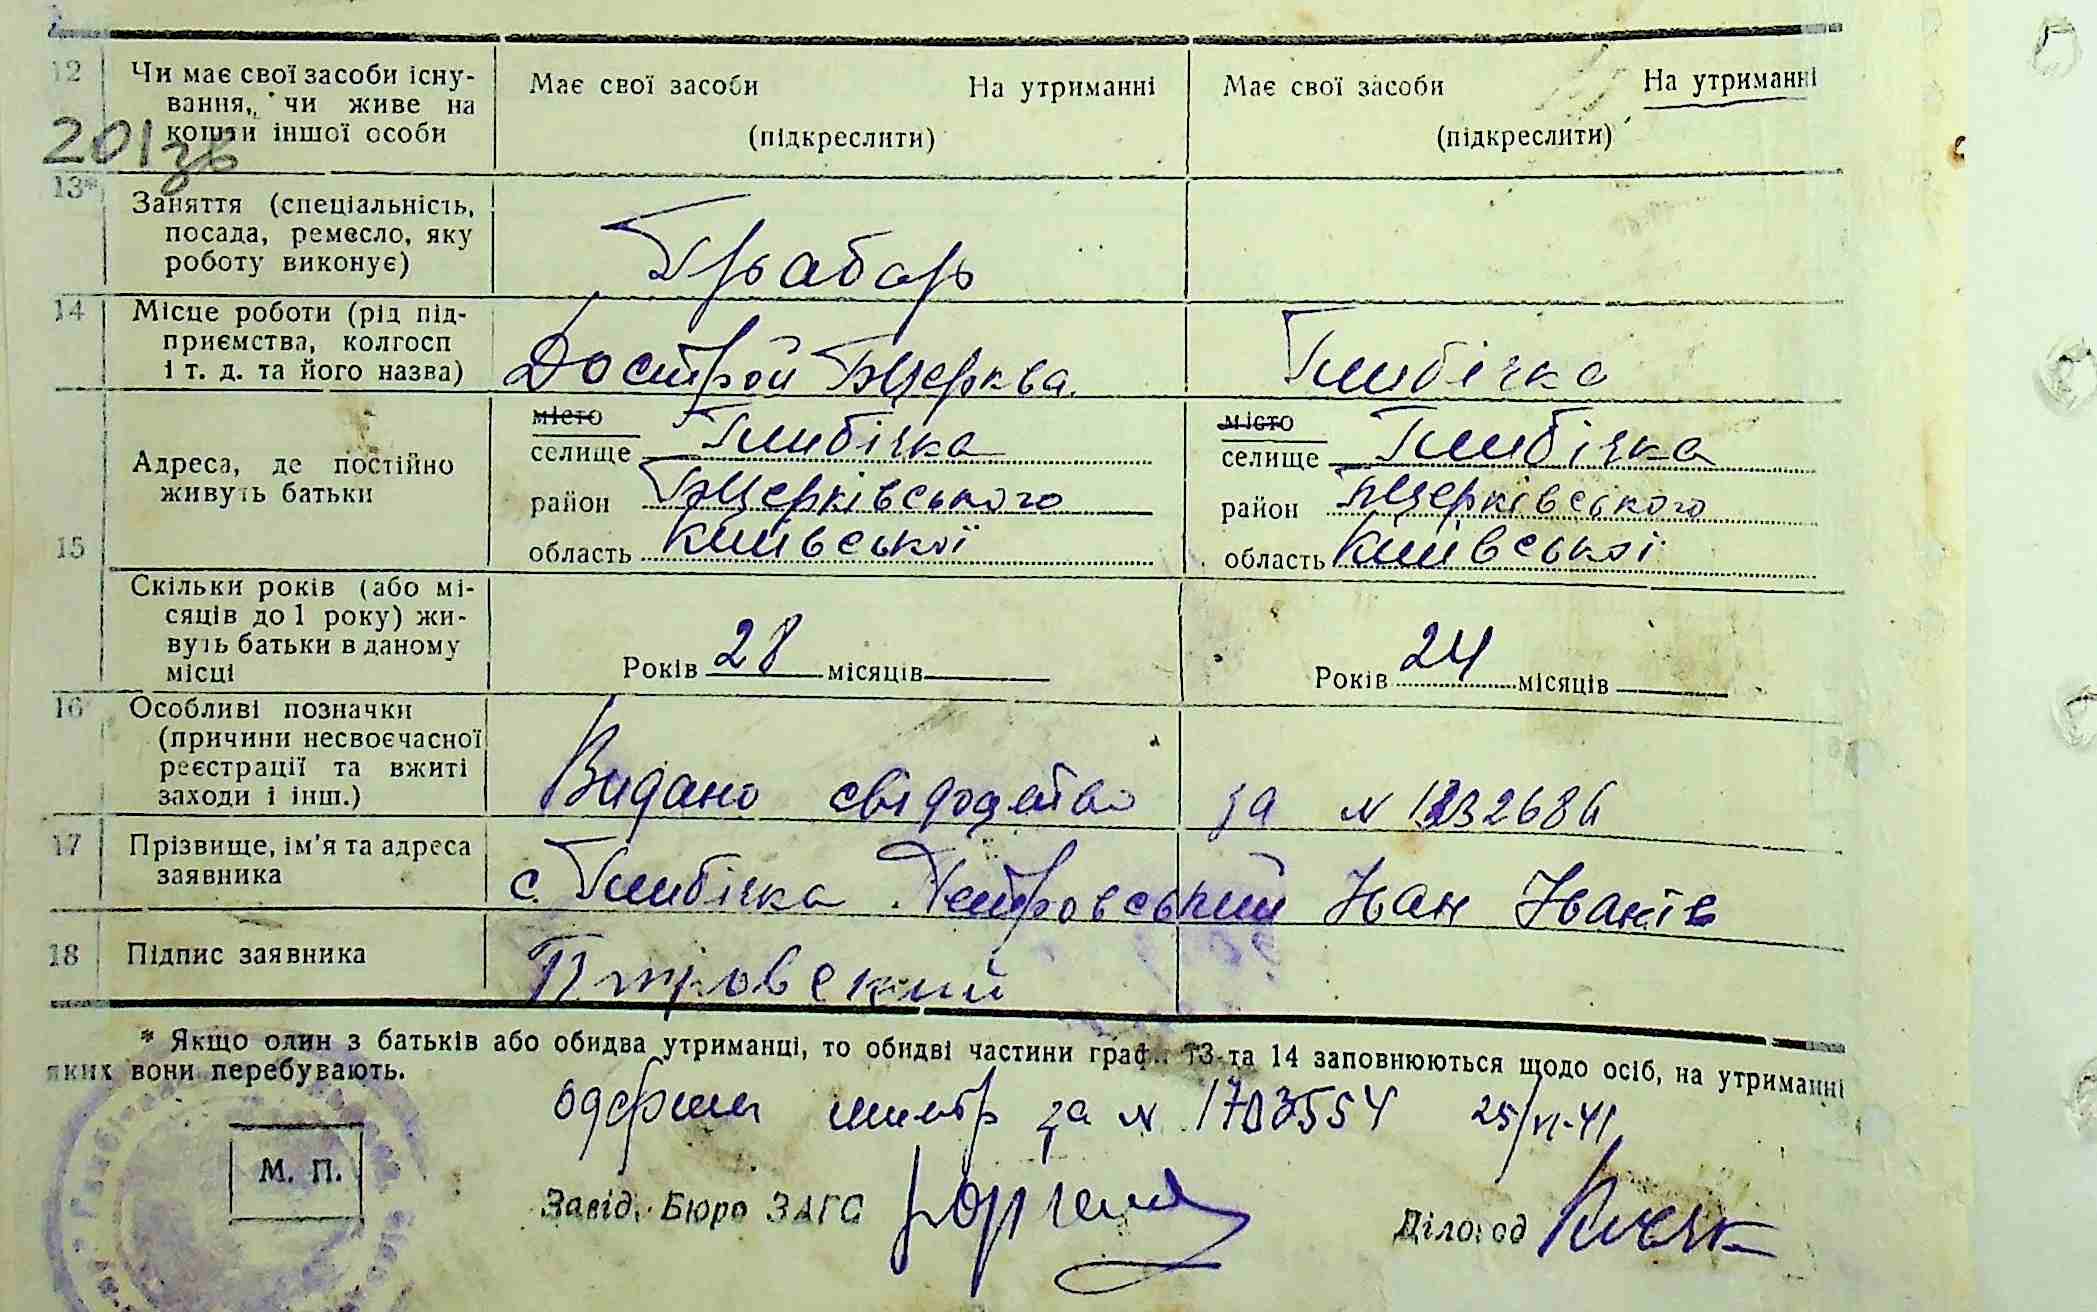 12 Чи має свої засоби існу-
вання, чи живе на
кошти іншої особи
Має свої засоби На утриманні
(підкреслити)
Має свої засоби На утриманні
(підкреслити)
201зв
13* Заняття (спеціальність,
посада, ремесло, яку
роботу виконує)
Грабарь
14 Місце роботи (рід під-
приємства, колгосп
і т. д. та його назва)
Дострой БЦерква.
Глибічка
15 Адреса, де постійно
живуть батьки
місто
селище Глибічка
район БЦерківського
область Київської
місто
селище Глибічка
район БЦерківського
область Київської
Скільки років (або мі-
сяців до 1 року) жи-
вуть батьки в даному
місці
Років 28 місяців
Років 24 місяців
16 Особливі позначки
(причини несвоєчасної
реєстрації та вжиті
заходи і інш.)
Видано свідодство за N
17 Прізвище, ім'я та адреса
заявника
с. Глибічка Петровський Іван Іванів
18 Підпис заявника
Питровский
* Якщо один з батьків або обидва утриманці, то обидві частини граф. 13 та 14 заповнюються щодо осіб, на утриманні
яких вони перебувають.
за N 1703554 25/VI-41
М. П.
Завід. Бюро ЗАГС
Діловод